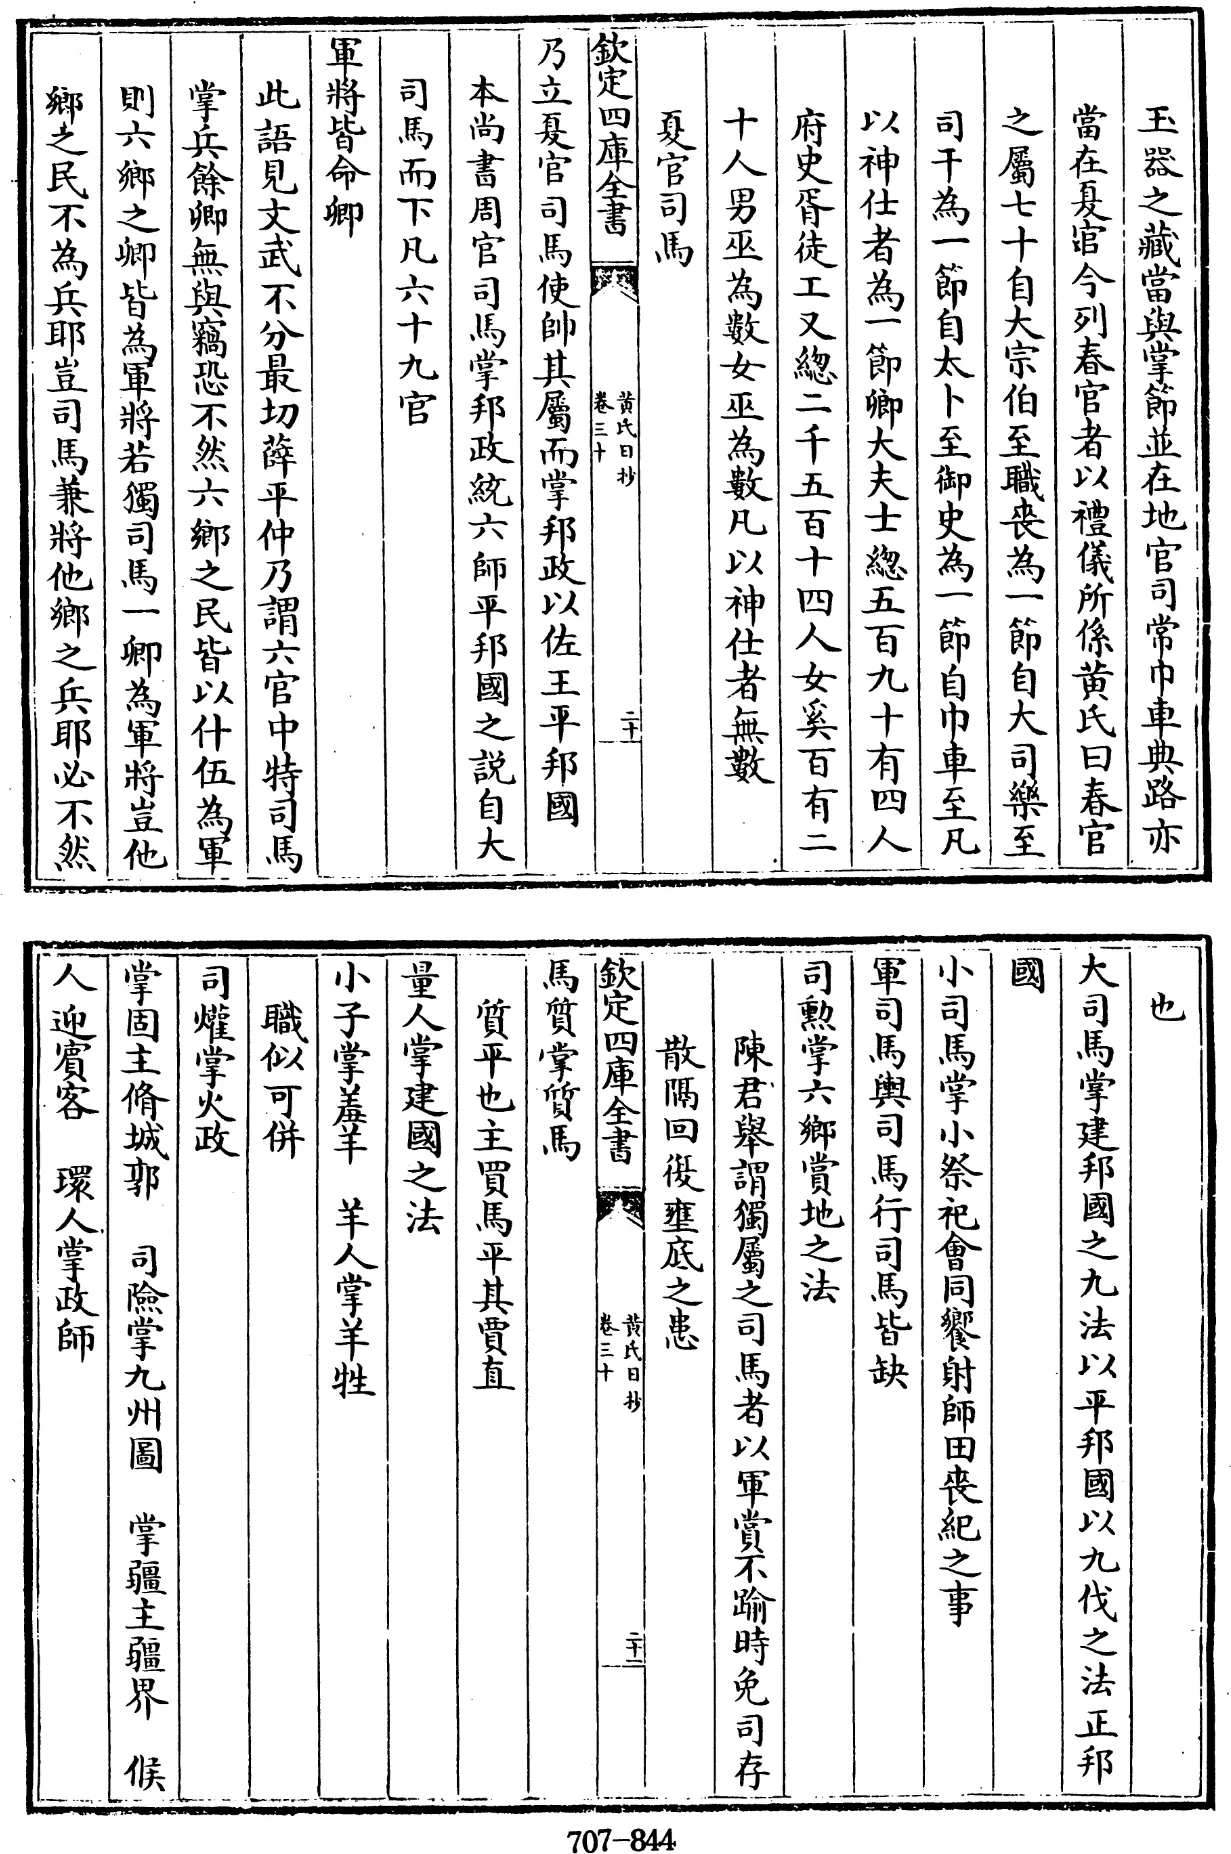 玉器之藏當與掌節並在地官司常巾車典路亦
當在夏官今列春官者以禮儀所係黄氏曰春官
之屬七十自大宗伯至職喪為一節自大司樂至
司干為一節自太卜至御史為一節自巾車至凡
以神仕者為一節卿大夫士緫五百九十有四人
府史胥徒工又緫二千五百十四人女奚百有二
十人男巫為數女巫為數凡以神仕者無數
夏官司馬
欽定四庫全書
黄氏日抄
卷三十
二十
乃立夏官司馬使帥其屬而掌邦政以佐王平邦國
本尚書周官司馬掌邦政統六師平邦國之説自大
司馬而下凡六十九官
軍將皆命卿
此語見文武不分最切薛平仲乃謂六官中特司馬
掌兵餘卿無與竊恐不然六鄉之民皆以什伍為軍
則六鄉之卿皆為軍將若獨司馬一卿為軍將豈他
鄉之民不為兵耶豈司馬兼將他鄉之兵耶必不然
也
大司馬掌建邦國之九法以平邦國以九伐之法正邦
國
小司馬掌小祭祀會同饗射師田喪紀之事
軍司馬輿司馬行司馬皆缺
司勲掌六鄉賞地之法
陳君舉謂獨屬之司馬者以軍賞不踰時免司存
散隔回復壅底之患
欽定四庫全書
黄氏日抄
卷三十
二十一
馬質掌質馬
質平也主買馬平其賈直
量人掌建國之法
小子掌羞羊　羊人掌羊牲
職似可併
司爟掌火政
掌固主脩城郭　司險掌九州圖　掌疆主疆界　候
人迎賓客　環人掌政師
707-844